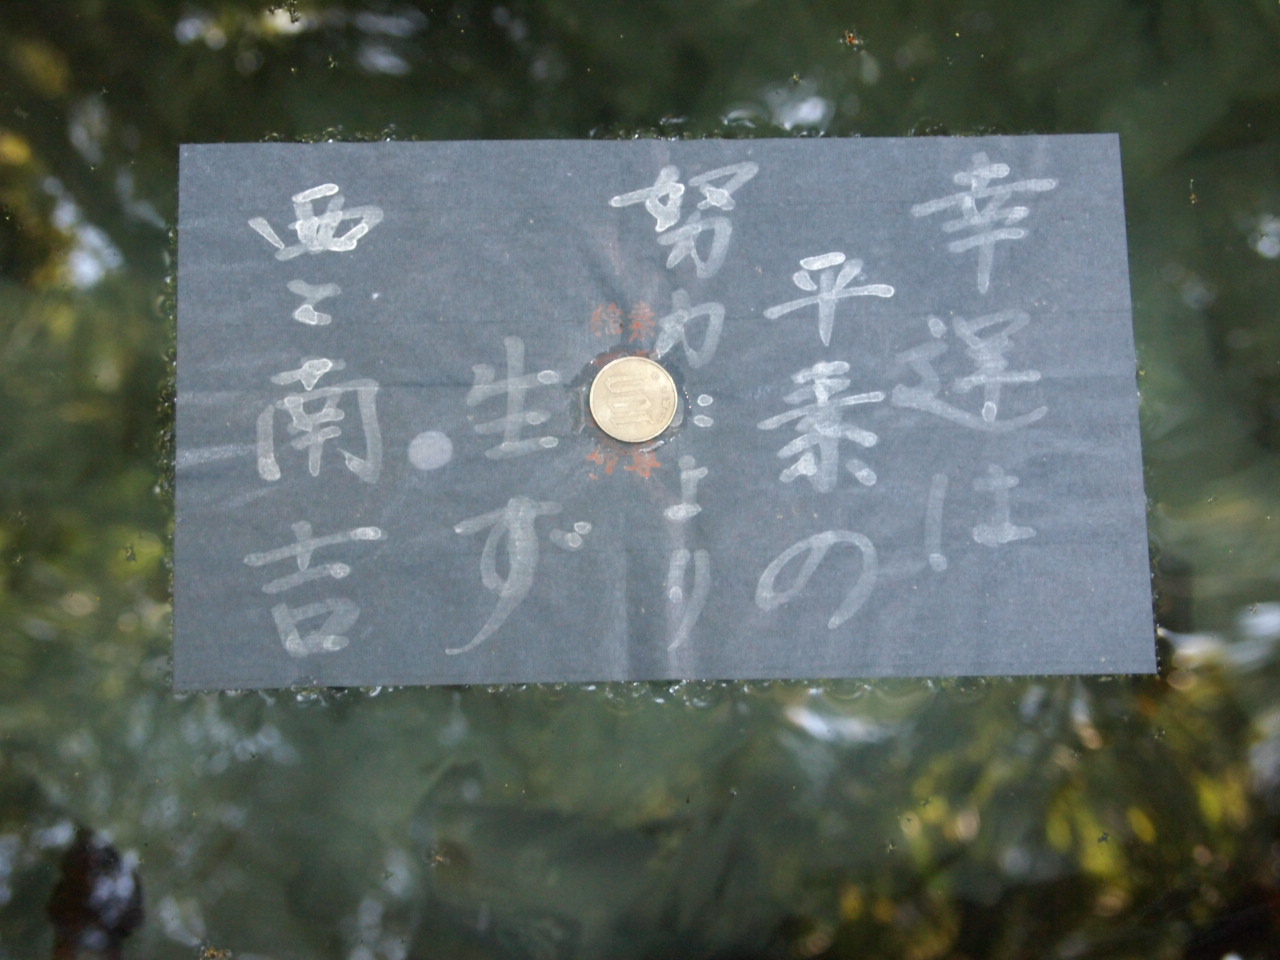 幸運は
平素の
努力により
生ず
西と南吉